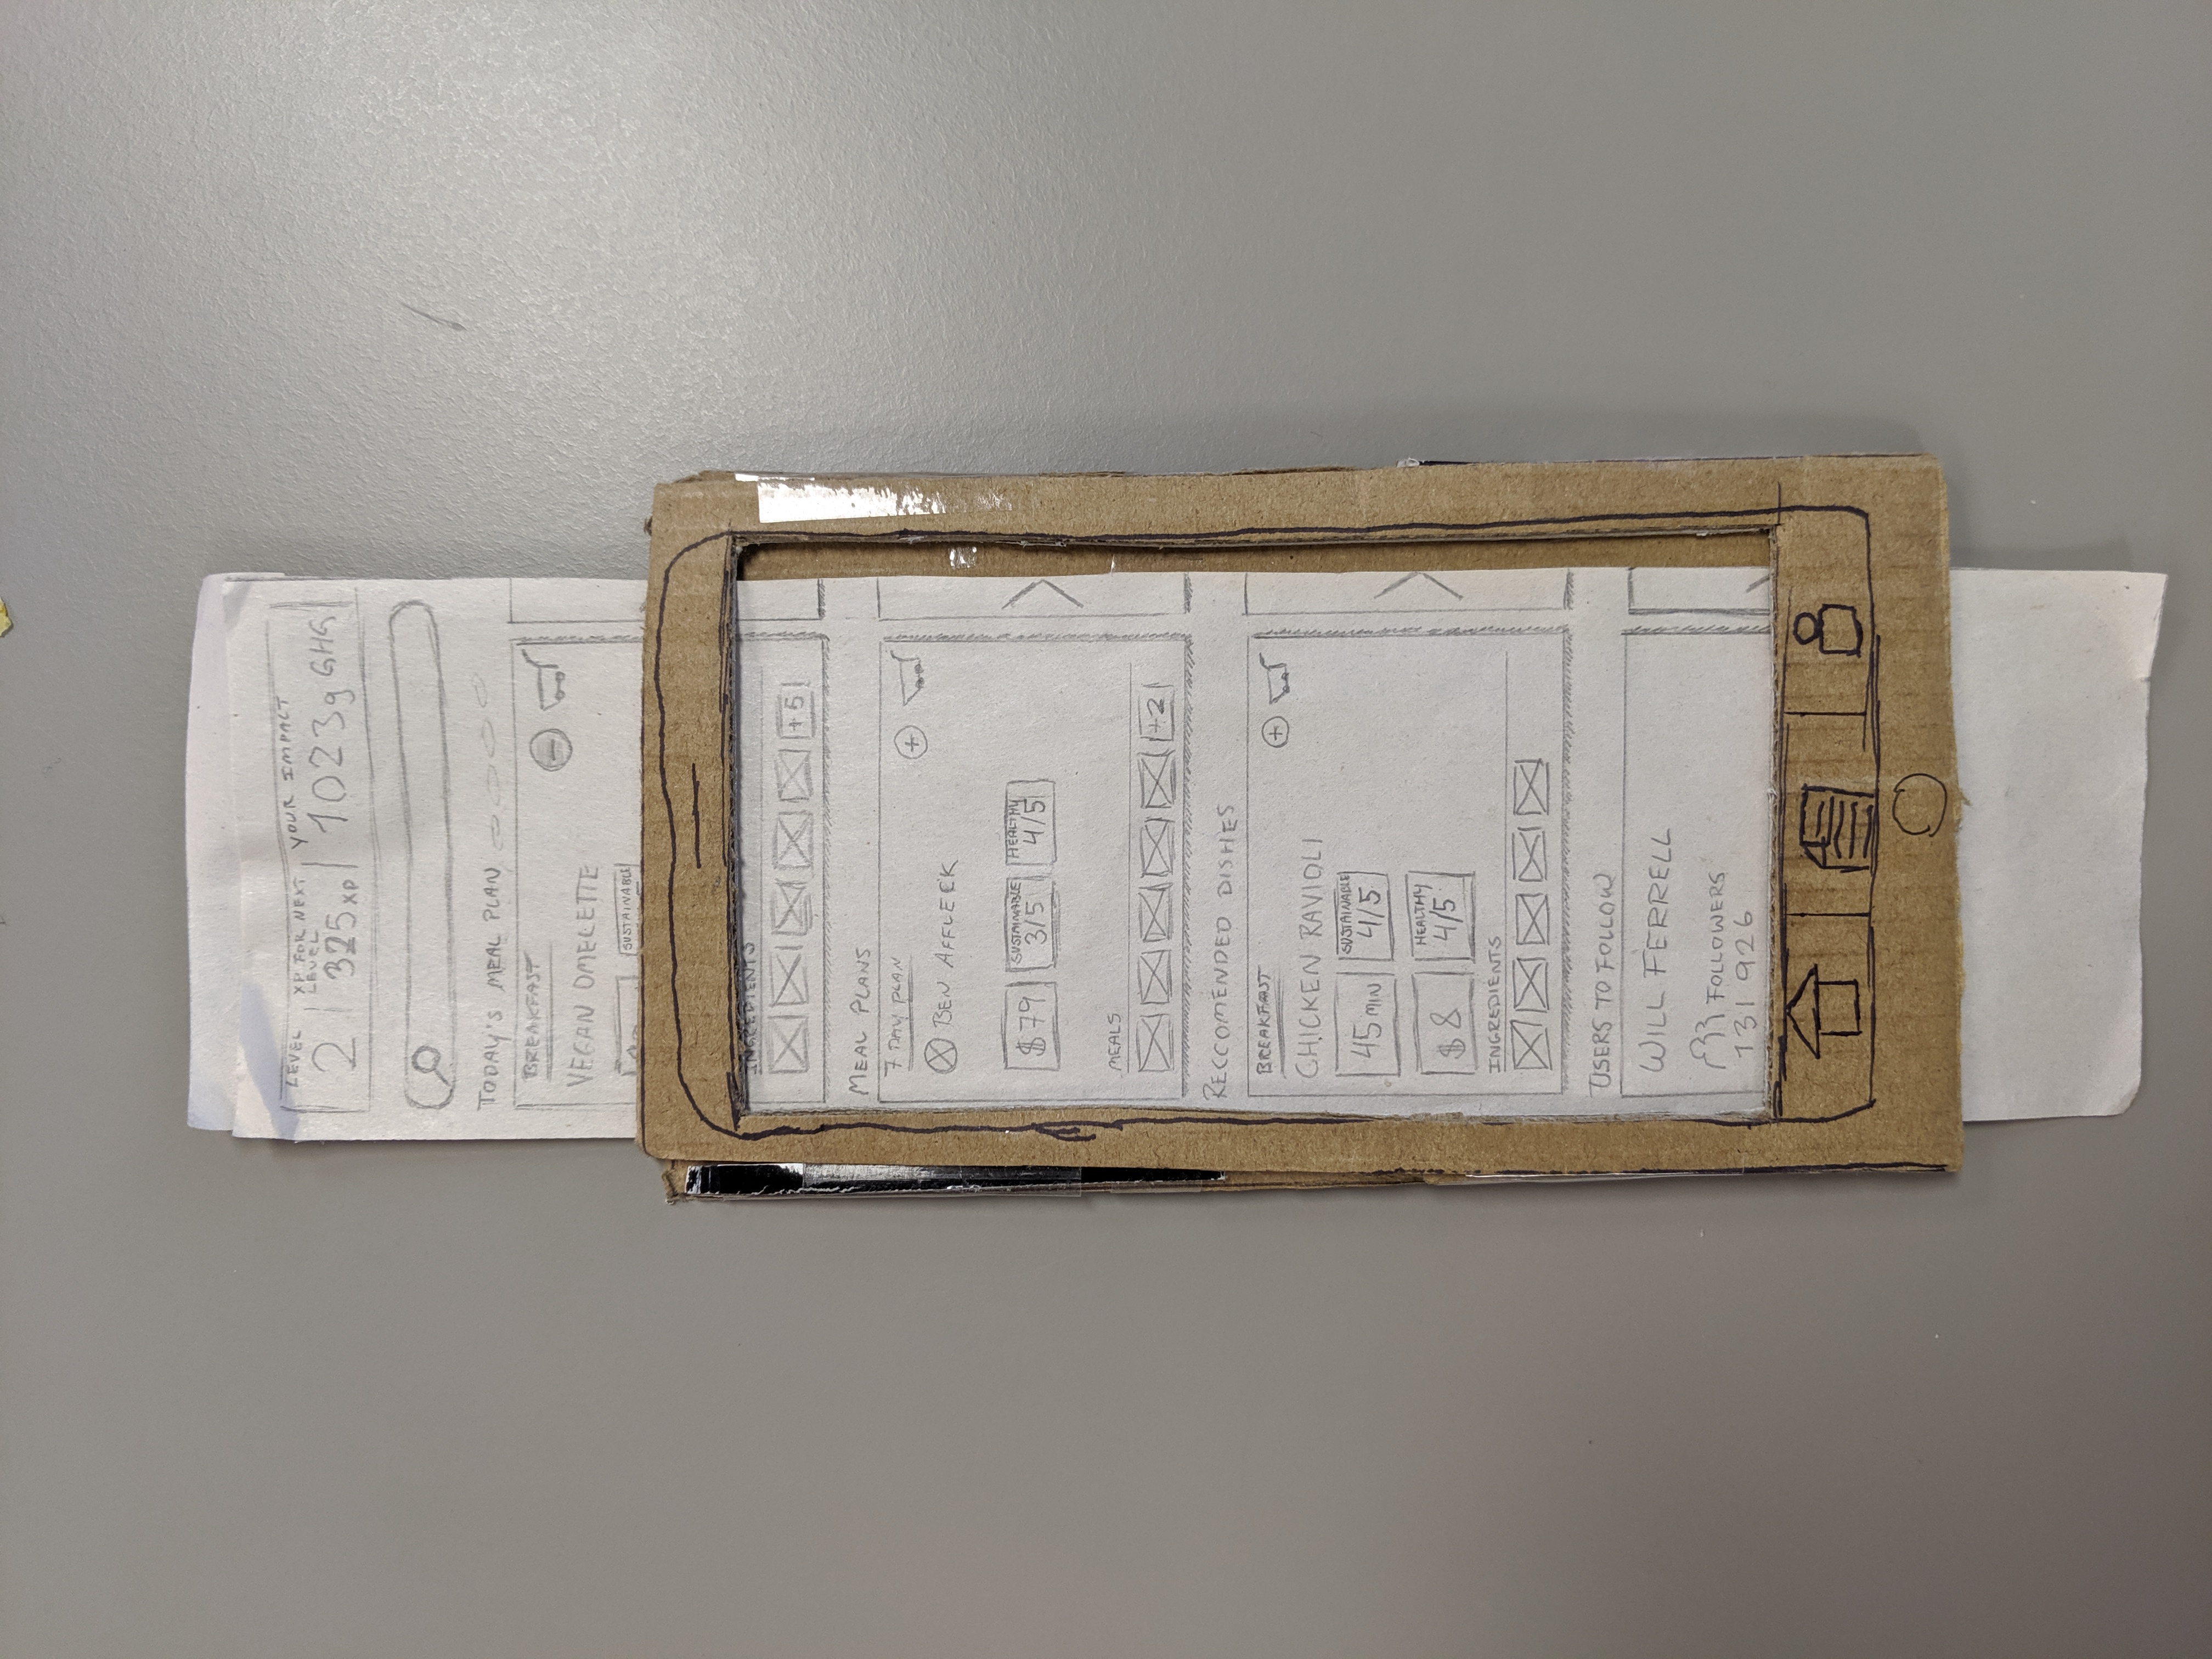 LEVEL XP FOR NEXT LEVEL YOUR IMPACT
2 325 XP 1023g GHG
TODAY'S MEAL PLAN
BREAKFAST
VEGAN OMELETTE
SUSTAINABLE
INGREDIENTS
+5
MEAL PLANS
7 DAY PLAN
BEN AFFLEEK
$79 SUSTAINABLE 3/5 HEALTHY 4/5
MEALS
+2
RECCOMENDED DISHES
BREAKFAST
CHICKEN RAVIOLI
45 MIN SUSTAINABLE 4/5
$8 HEALTHY 4/5
INGREDIENTS
USERS TO FOLLOW
WILL FERRELL
FOLLOWERS
131 926